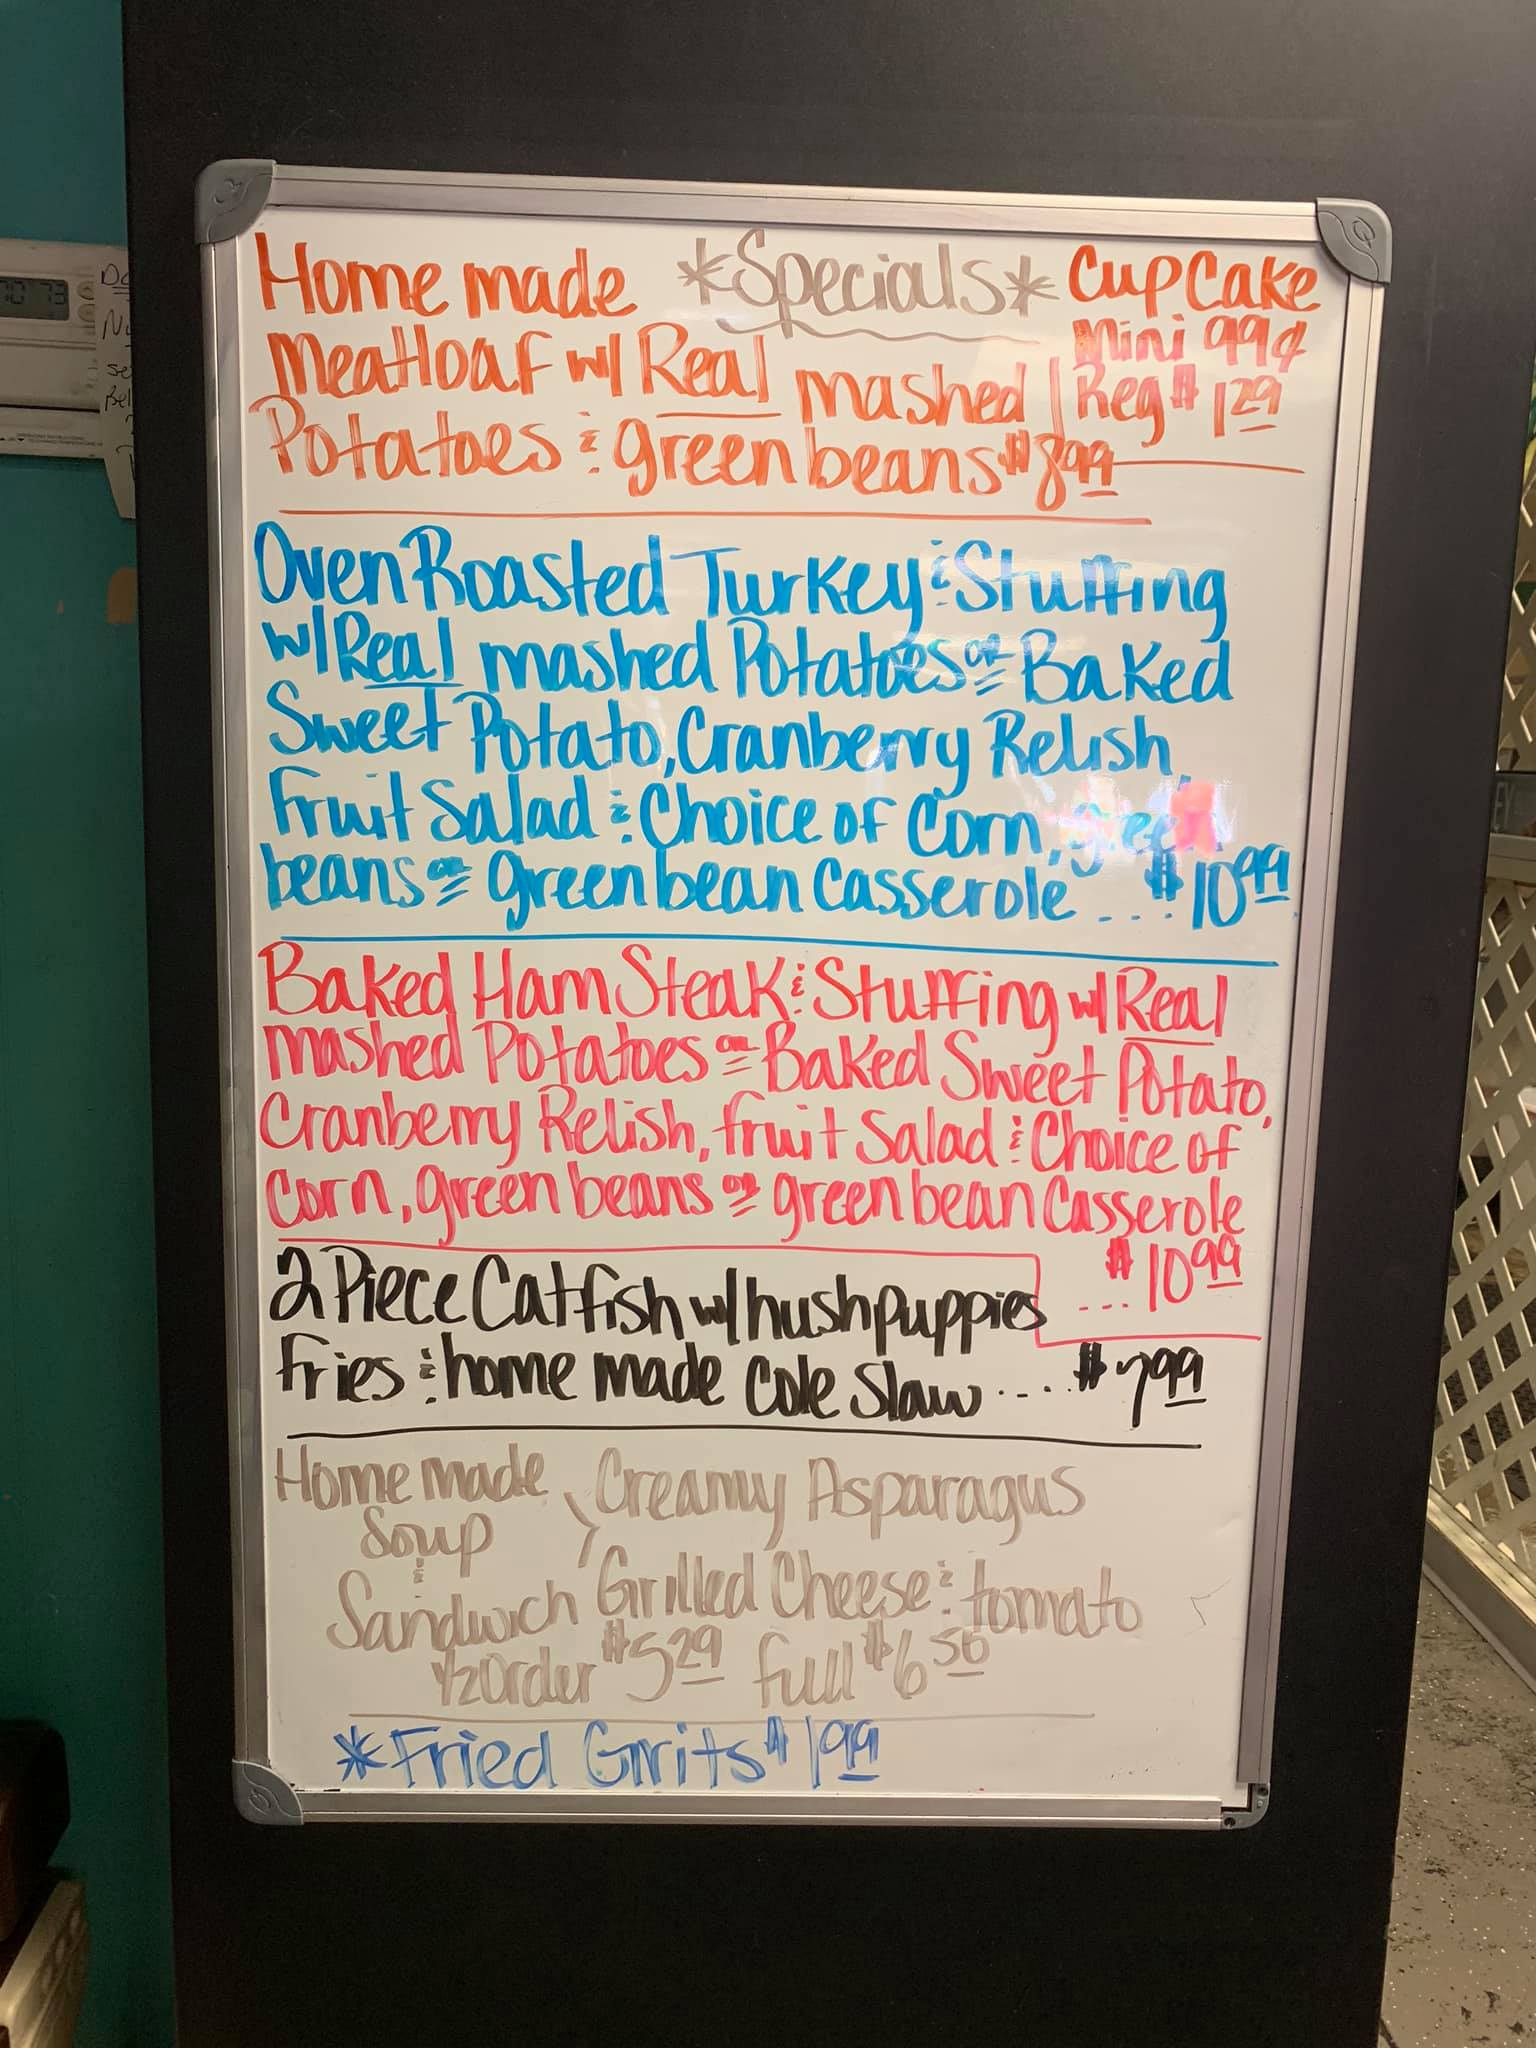 *Specials*
Home made
Meatloaf w/ Real mashed
Potatoes & green beans $8.99
CupCake
Mini 99¢
Reg $1.29
Oven Roasted Turkey & Stuffing
w/ Real mashed Potatoes or Baked
Sweet Potato, Cranberry Relish,
Fruit Salad & Choice of Corn, green
beans or green bean Casserole .... $10.99
Baked Ham Steak & Stuffing w/ Real
mashed Potatoes or Baked Sweet Potato,
Cranberry Relish, fruit Salad & Choice of
Corn, green beans or green bean Casserole
... $10.99
2 Piece Catfish w/ hushpuppies
Fries & home made Cole Slaw .... $7.99
Home made Soup & Sandwich
Creamy Asparagus
Grilled Cheese & tomato
1/2 Order $5.29 full $6.50
*Fried Grits $1.99
73